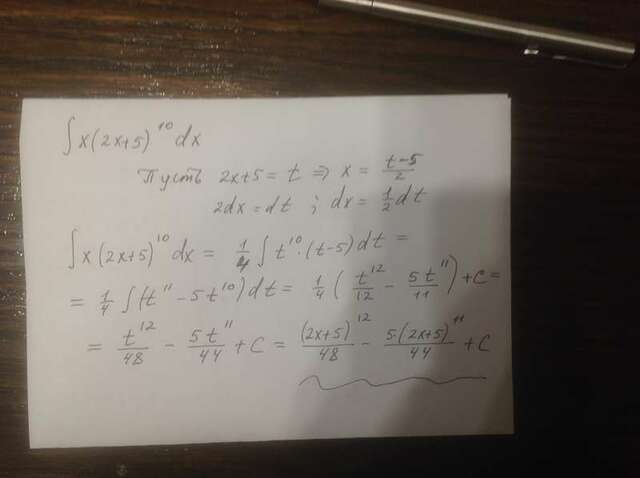 ∫x(2x+5)¹⁰dx
Пусть 2x+5 = t ⇒ x = (t-5)/2
2dx = dt ; dx = 1/2 dt
∫x(2x+5)¹⁰dx = 1/4 ∫t¹⁰·(t-5)dt =
= 1/4 ∫(t¹¹ - 5t¹⁰)dt = 1/4 (t¹²/12 - 5t¹¹/11) + C =
= t¹²/48 - 5t¹¹/44 + C = (2x+5)¹²/48 - 5·(2x+5)¹¹/44 + C